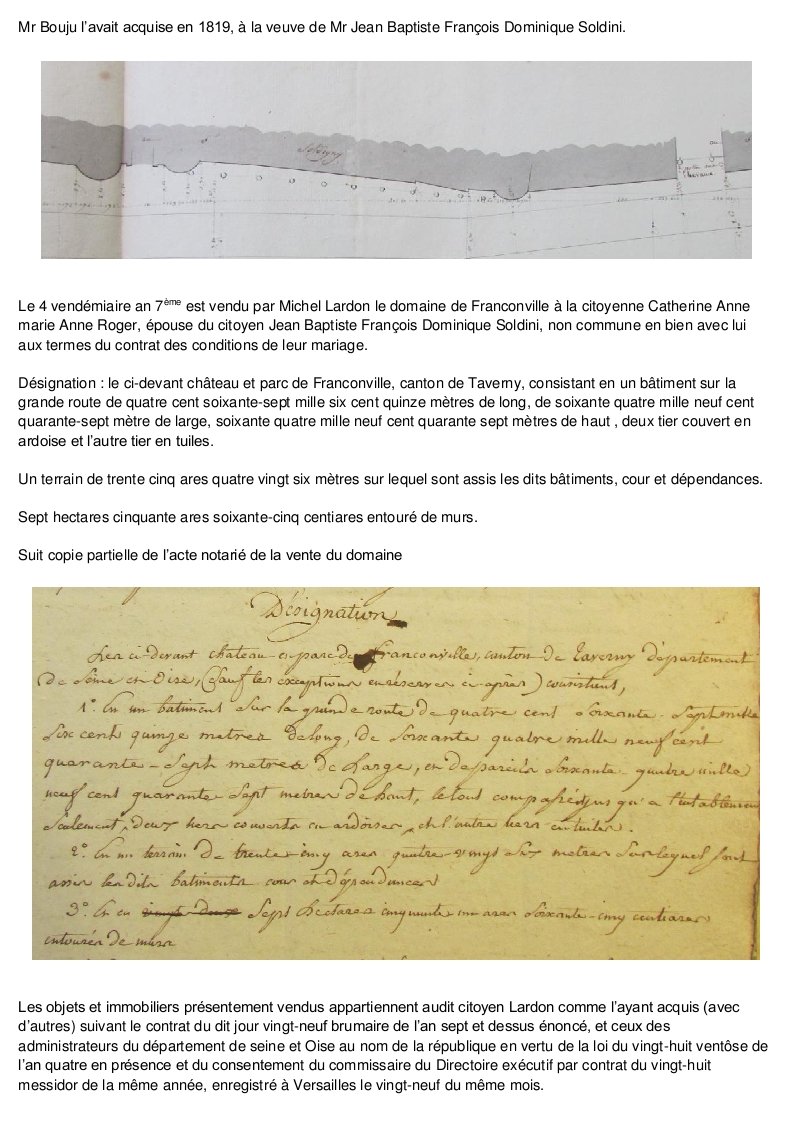 Mr Bouju l'avait acquise en 1819, à la veuve de Mr Jean Baptiste François Dominique Soldini.
Le 4 vendémiaire an 7ème est vendu par Michel Lardon le domaine de Franconville à la citoyenne Catherine Anne
marie Anne Roger, épouse du citoyen Jean Baptiste François Dominique Soldini, non commune en bien avec lui
aux termes du contrat des conditions de leur mariage.
Désignation : le ci-devant château et parc de Franconville, canton de Taverny, consistant en un bâtiment sur la
grande route de quatre cent soixante-sept mille six cent quinze mètres de long, de soixante quatre mille neuf cent
quarante-sept mètre de large, soixante quatre mille neuf cent quarante sept mètres de haut , deux tier couvert en
ardoise et l'autre tier en tuiles.
Un terrain de trente cinq ares quatre vingt six mètres sur lequel sont assis les dits bâtiments, cour et dépendances.
Sept hectares cinquante ares soixante-cinq centiares entouré de murs.
Suit copie partielle de l'acte notarié de la vente du domaine
Désignation
Les ci-devant chateau et parc de Franconville, canton de Taverny département
de Seine et Oise, (Sauf les exceptions en réserves ci-après) consistent,
1°. En un batiment Sur la grande route de quatre cent Soixante-Sept mille
Six cent quinze metres de long, de Soixante quatre mille neuf cent
quarante-Sept metres de Large, et de Soixante-quatre mille
neuf cent quarante Sept metres de haut, le tout jusqu'a l'entablement
Seulement, deux tiers couverts en ardoises, et l'autre tiers en tuiles.
2°. En un terrain De trente-cinq ares quatre-vingt Six metres Sur lequel Sont
assis les dits batiments cour et dépendances
3°. Et en vingt deux Sept Hectares cinquante un ares Soixante-cinq centiares
entourés de murs
Les objets et immobiliers présentement vendus appartiennent audit citoyen Lardon comme l'ayant acquis (avec
d'autres) suivant le contrat du dit jour vingt-neuf brumaire de l'an sept et dessus énoncé, et ceux des
administrateurs du département de seine et Oise au nom de la république en vertu de la loi du vingt-huit ventôse de
l'an quatre en présence et du consentement du commissaire du Directoire exécutif par contrat du vingt-huit
messidor de la même année, enregistré à Versailles le vingt-neuf du même mois.